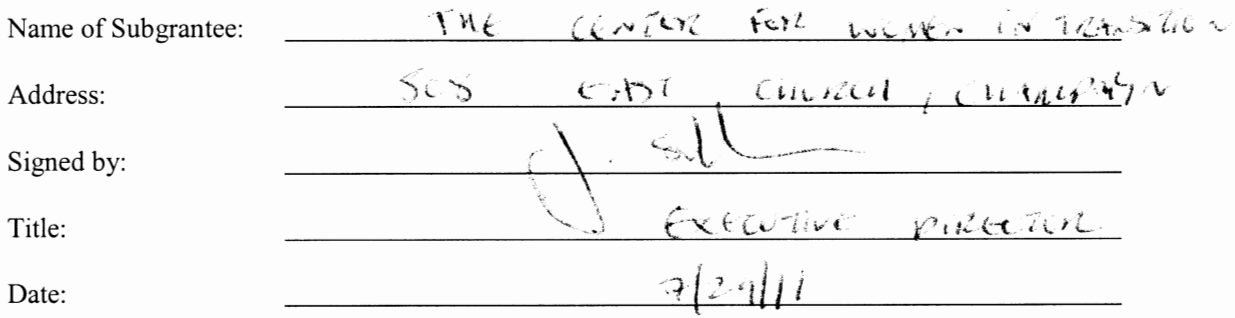 Name of Subgrantee: THE CENTER FOR WOMEN IN TRANSITION
Address: 508 EAST CHURCH, CHAMPAIGN
Signed by: J.
Title: EXECUTIVE DIRECTOR
Date: 7/29/11